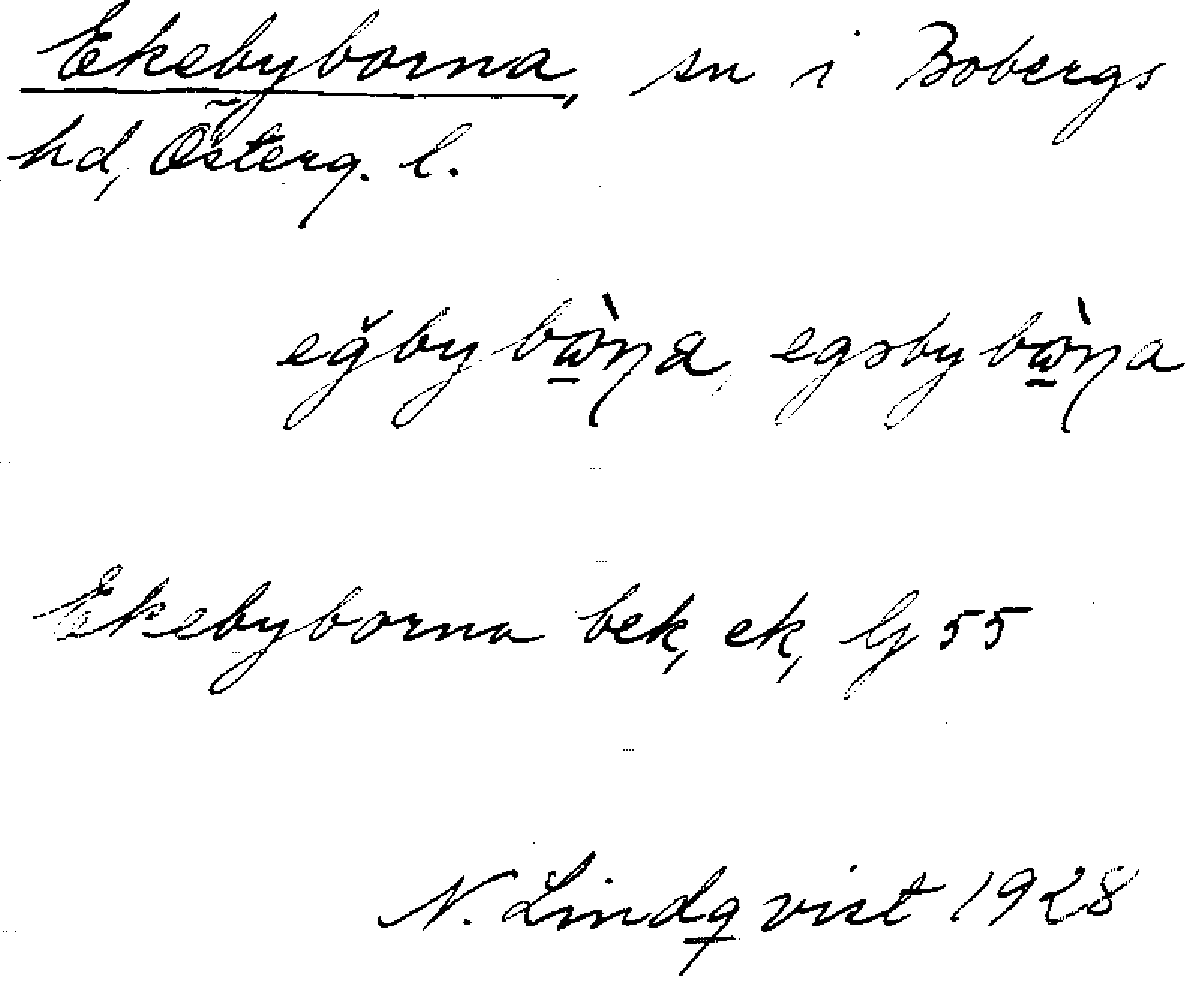 Ekebyborna, sn i Bobergs
hd, Österg. l.
eğbybὼ̱ŋa, egsbybὼ̱ŋa
Ekebyborna bek, ek, G 55
N. Lindqvist 1928